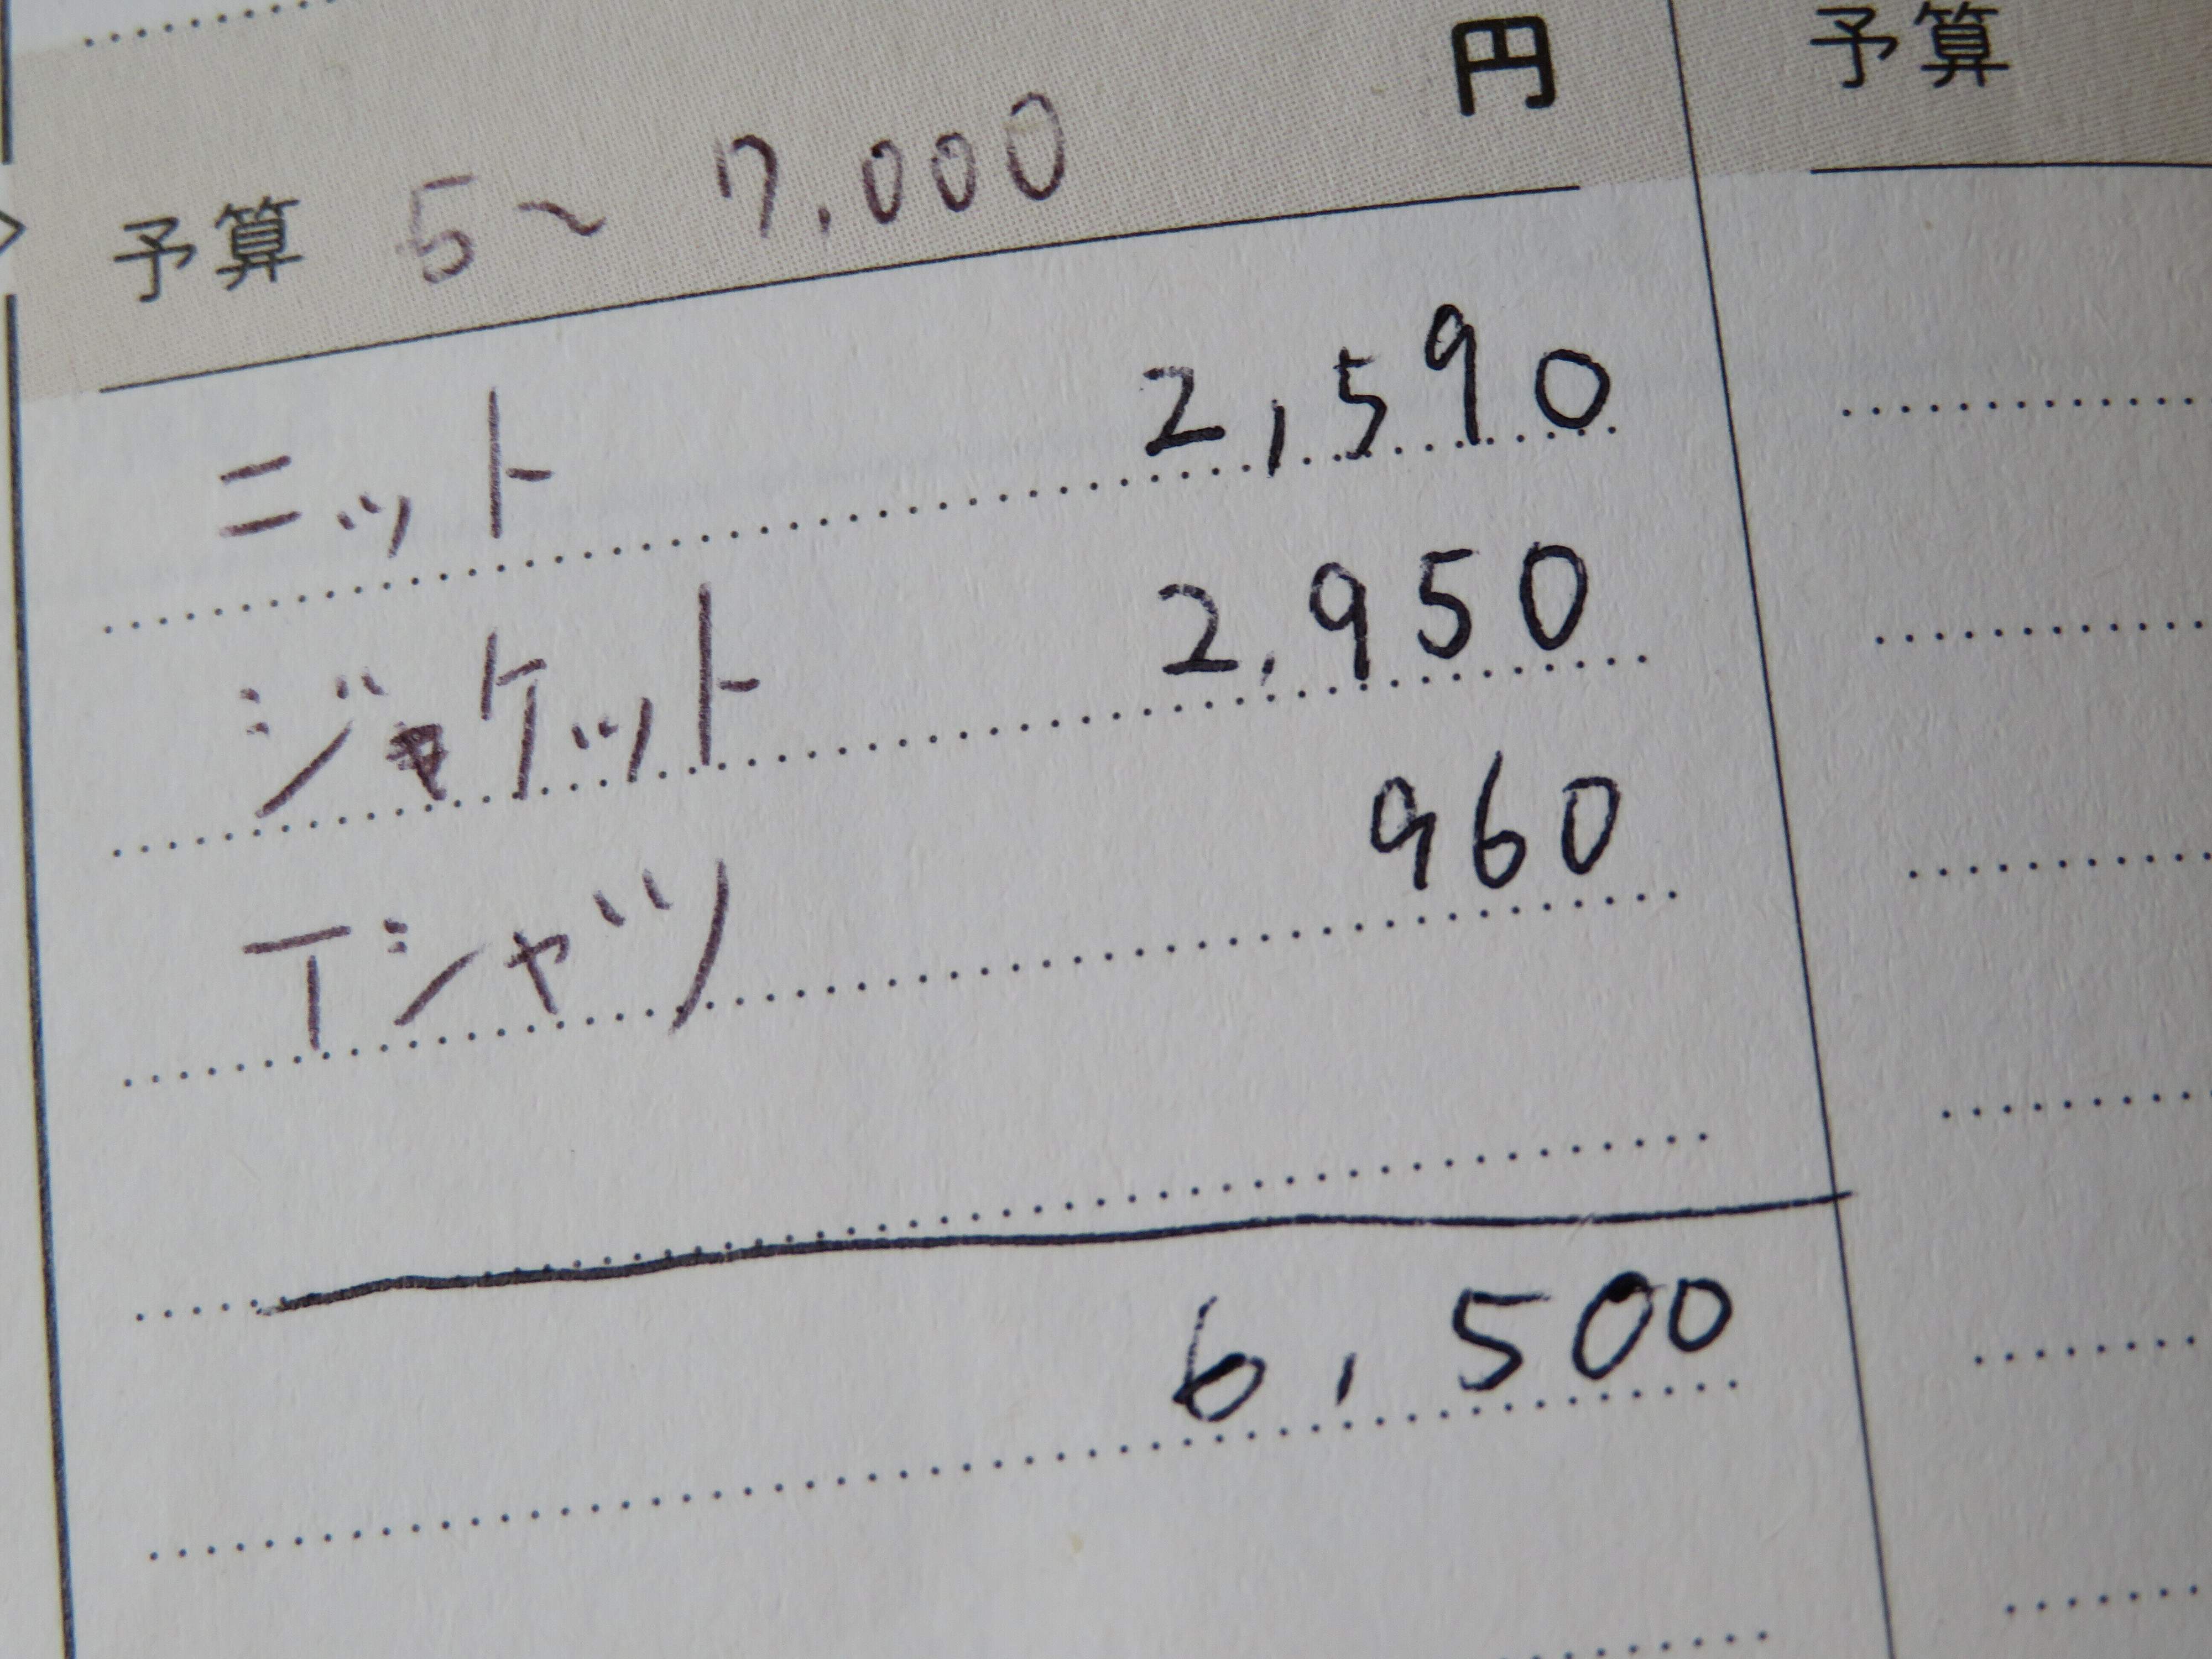 円
予算 5～7,000
予算
ニット 2,590
ジャケット 2.950
Tシャツ 960
6,500